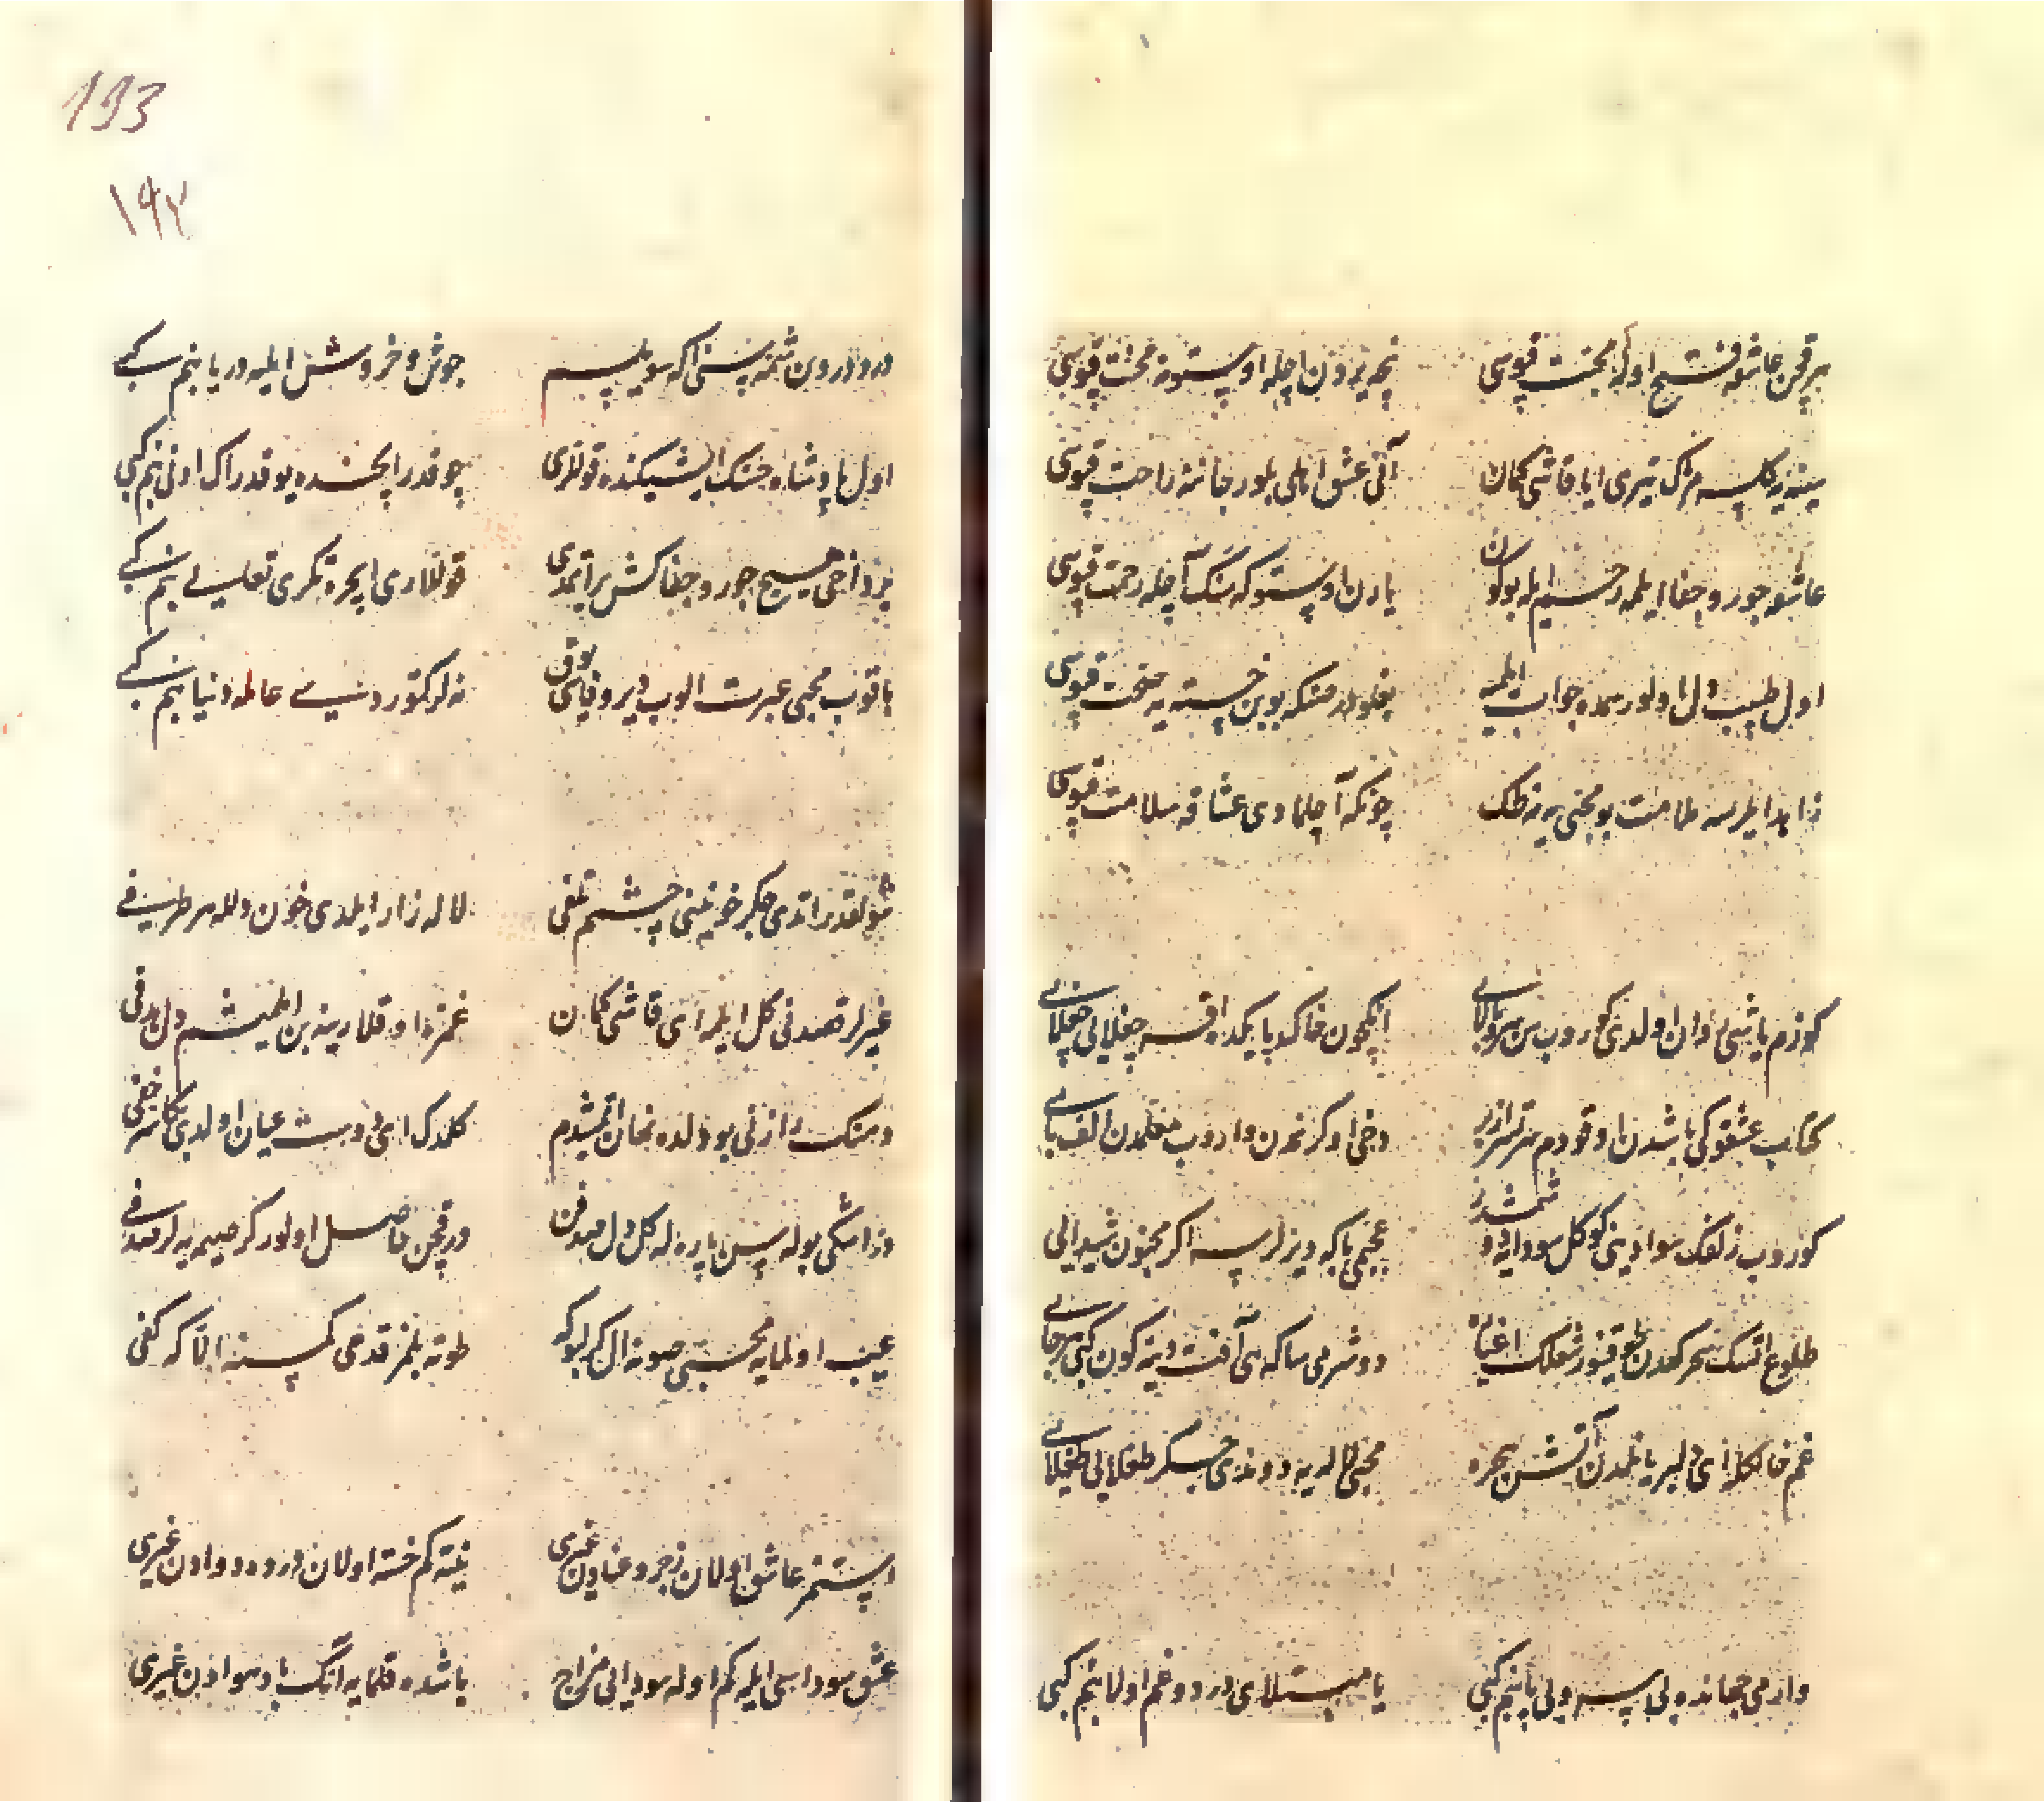 هر قچن عاشقه فتح اوله محبت قپوسی
نجه یردن اچلە اوستونه محنت قپوسی
سینه یه کلسه مژک تیری ایا قاشی کمان
آنی عشق اهلی بلور جاننه راحت قپوسی
عاشقه جور و جفا ایلمه رحم ایله بوکون
یارن اوستوکه سنک آچله رحمت قپوسی
اول طبیب دل اولور سمده جواب ایلمه
بغلودر منکه بوین خسته یه صحت قپوسی
زاهد ایرسه ملامت بو محبی یه نه طک
چونکه آچلمادی عشاقه سلامت قپوسی
کوزم یاشی روان اولدی کوروب سن سرو بالایی
انکچون خاکپایکده اقسه چغلایی چغلایی
کتاب عشقوکی باشدن اوقودم سرتسر ازبر
دخی اوکرنمدن واروب معلمدن الف بایی
کوروب زلفک سوادینی کوکل سودایه دوشمشدر
عجبمی باکه دیرلرسه اکر مجنون شیدایی
طلوع اتسک سحرکهدن
دوشرمی ساکه ای آفت دینه کون کبی هرجایی
غم خالکله ای دلبر یانلمدن آتش هجره
محبی لاله یه دوندی جکر طغلایی طغلایی
وارمی جهانده بلی سر ولی بنم کبی
یا مبتلای درد و غم اولا بنم کبی
193
١٩٣
درد درون شمه سنی اکه سویلیسم
جوش و خروش ایله دریا بنم کبی
اول پادشاه حسنک ایشیکنده قولری
چوقدر انجق ده یوقدر اک ادنی بنم کبی
یزداجی هیچ جور و جفاکش براتمدی
قوللاری ایچره تکری تعالی بنم کبی
باقوب محبی عبرت الوب دیر وفاسی یوق
نه لر کتوردیسه عالمه دنیا بنم کبی
شولقدر اتدی جکر خونینی چشمم تلفی
لاله زار ایلدی خون دلله هر طرفی
غیرلر قصدنی کل ایلمه ای قاشی کمان
غمزه اوقلارینه بن ایلمیشم دل هدفی
دهنک رازنی بو دلده نهان اتمشدم
کلدک ای دوست عیان اولدی بکا سر خفی
در اشکی بوله سن پاره له کل دل صدفن
در قچن حاصل اولور کر صیمیه لر صدفی
عیب اولمایه محبی صونه ال کر لبوکه
طوته بلمز قدحی کمسنه الا که کفی
استمز عاشق اولان زجر و عنادن غیری
نیته کم خسته اولان درد و دوادن غیری
عشق سوداسی ایله کم اوله سودایی مزاج
باشده قلمایه انک باد هوادن غیری